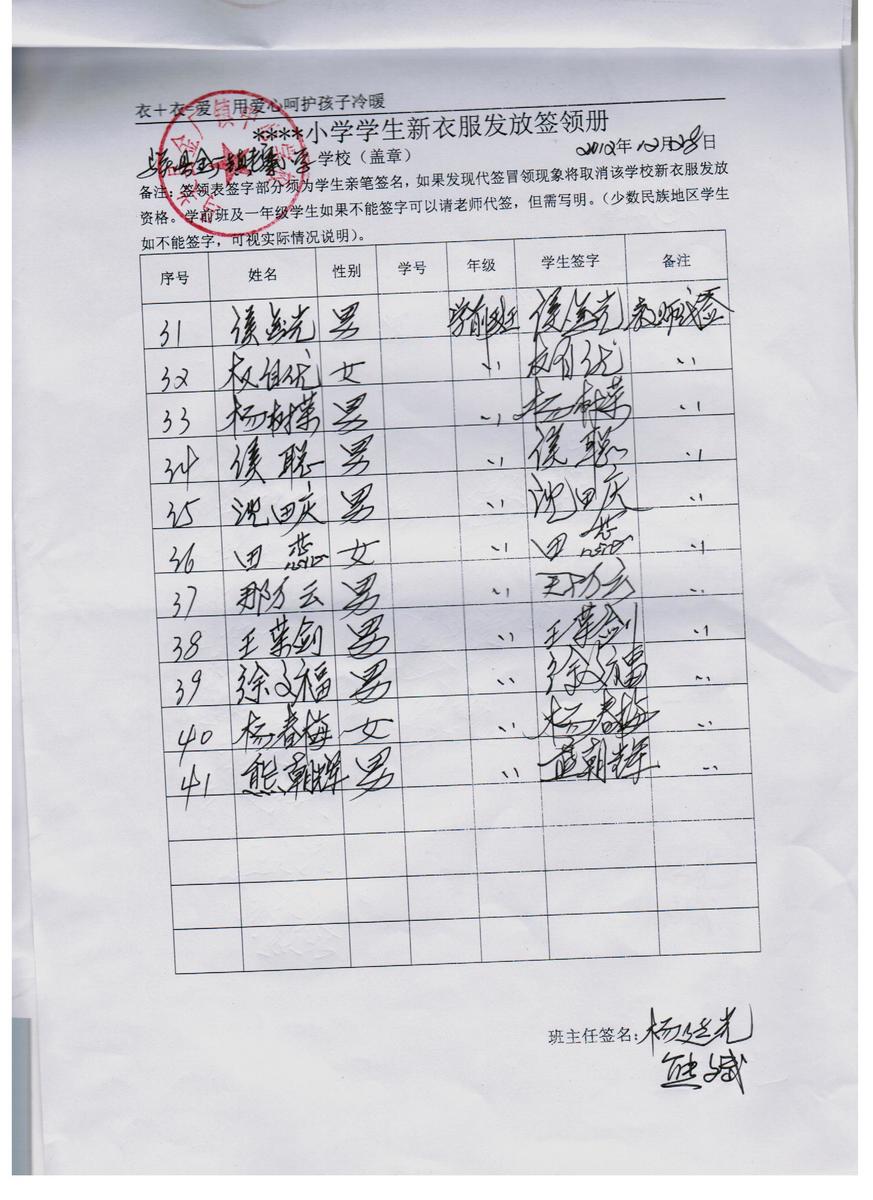 衣+衣=爱 用爱心呵护孩子冷暖
****小学学生新衣服发放签领册
学校（盖章） 2012年12月28日
备注：签领表签字部分须为学生亲笔签名，如果发现代签冒领现象将取消该学校新衣服发放
资格。学前班及一年级学生如果不能签字可以请老师代签，但需写明。（少数民族地区学生
如不能签字，可视实际情况说明）。
序号 姓名 性别 学号 年级 学生签字 备注
31 侯 光 男 学前班 侯 光 教师代签
32 权自优 女 〃 权自优 〃
33 杨树荣 男 〃 杨树荣 〃
34 侯聪 男 〃 侯聪 〃
35 沈田庆 男 〃 沈田庆 〃
36 田蕊 女 〃 田蕊 〃
37 云 男 〃 云 〃
38 王荣剑 男 〃 王荣剑 〃
39 徐文福 男 〃 徐文福 〃
40 杨春梅 女 〃 杨春梅 〃
41 熊朝辉 男 〃 朝辉 〃
班主任签名：杨廷光
熊斌